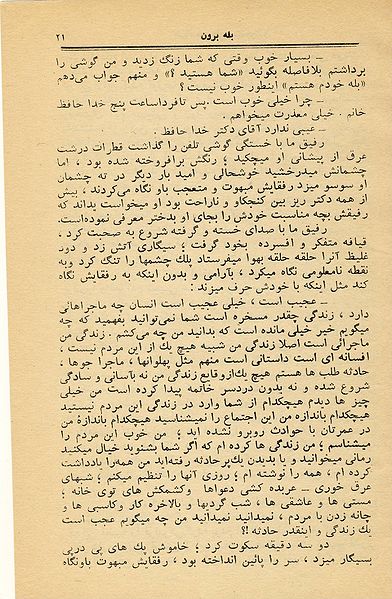 بله برون ۲۱
ــ بسیار خوب وقتی که شما زنگ زدید و من گوشی را
برداشتم بلافاصله بگوئید «شما هستید ؟» و منهم جواب می‌دهم
«بله خودم هستم» اینطور خوب نیست ؟
ــ چرا خیلی خوب است . پس تا فردا ساعت پنج خدا حافظ
خانم . خیلی معذرت میخواهم .
ــ عیبی ندارد آقای دکتر خدا حافظ .
رفیق ما با خستگی گوشی تلفن را گذاشت قطرات درشت
عرق از پیشانی او میچکید ؛ رنگش برافروخته شده بود ، اما
چشمانش میدرخشید خوشحالی و امید بار دیگر در ته چشمان
او سوسو میزد رفقایش مبهوت و متعجب باو نگاه می‌کردند ، بیش
از همه دکتر ریز بین کنجکاو و ناراحت بود او میخواست بداند که
رفیقش بچه مناسبت خودش را بجای او بدختر معرفی نموده‌است.
رفیق ما با صدای خسته و گرفته شروع به صحبت کرد ،
قیافه متفکر و افسرده بخود گرفت ؛ سیگاری آتش زد و دود
غلیظ آنرا حلقه حلقه بهوا میفرستاد پلك چشمها را تنگ کرد و به
نقطه نامعلومی نگاه میکرد ، بآرامی و بدون اینکه به رفقایش نگاه
کند مثل اینکه با خودش حرف میزند :
ــ عجیب است ، خیلی عجیب است انسان چه ماجراهائی
دارد ، زندگی چقدر مسخره است شما نمی‌توانید بفهمید که چه
میگویم خیر خیلی مانده است که بدانید من چه می‌کشم . زندگی من
ماجرائی است اصلا زندگی من شبیه هیچ یك از این مردم نیست ،
افسانه ای است داستانی است منهم مثل پهلوانها ، ماجرا جوها ،
حادثه طلب ها هستم هیچ یك از وقایع زندگی من نه بآسانی و سادگی
شروع شده و نه بدون دردسر خاتمه پیدا کرده است من خیلی
چیز ها دیدم هیچکدام از شما وارد در زندگی این مردم نیستید
هیچکدام باندازه من این اجتماع را نمیشناسید هیچکدام باندازه من
در عمرتان با حوادث روبرو نشده اید ؛ من خوب این مردم را
میشناسم ؛ من زندگی ها کرده ام که اگر شما بشنوید خیال میکنید
رمانی میخوانید و یا بدیدن یك پر حادثه رفته‌اید من همه را یادداشت
کرده ام ، همه را نوشته ام ؛ روزی آنها را تنظیم میکنم ؛ شبهای
عرق خوری ــ عربده کشی دعواها وکشمکش های توی خانه ؛
مستی ها و عاشقی ها ، شب گردیها و بالاخره کار وکاسبی ها و
چانه زدن با مردم ، نمیدانید نمیدانید من چه میگویم عجب است
یك زندگی و اینقدر حادثه !؟
دو سه دقیقه سکوت کرد ؛ خاموش پك های پی درپی
بسیگار میزد ، سر را پائین انداخته بود ، رفقایش مبهوت باو نگاه